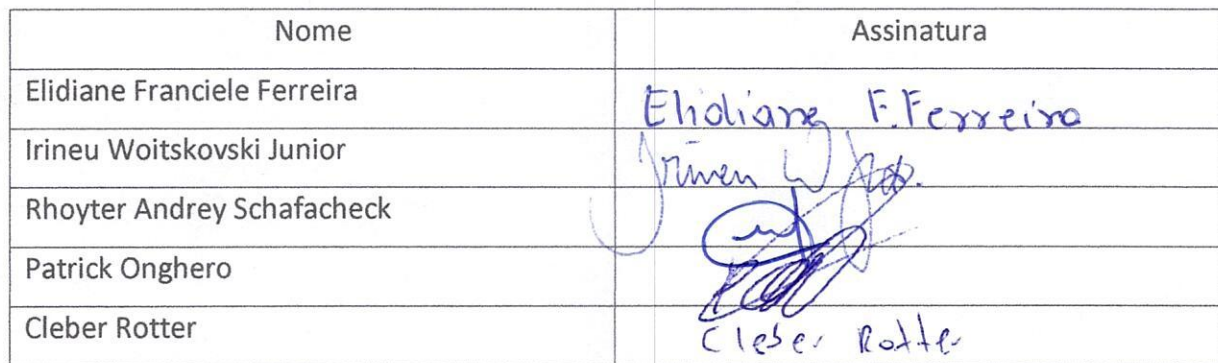 Nome Assinatura
Elidiane Franciele Ferreira Elidiane F. Ferreira
Irineu Woitskovski Junior Irineu W
Rhoyter Andrey Schafacheck
Patrick Onghero
Cleber Rotter Cleber Rotter